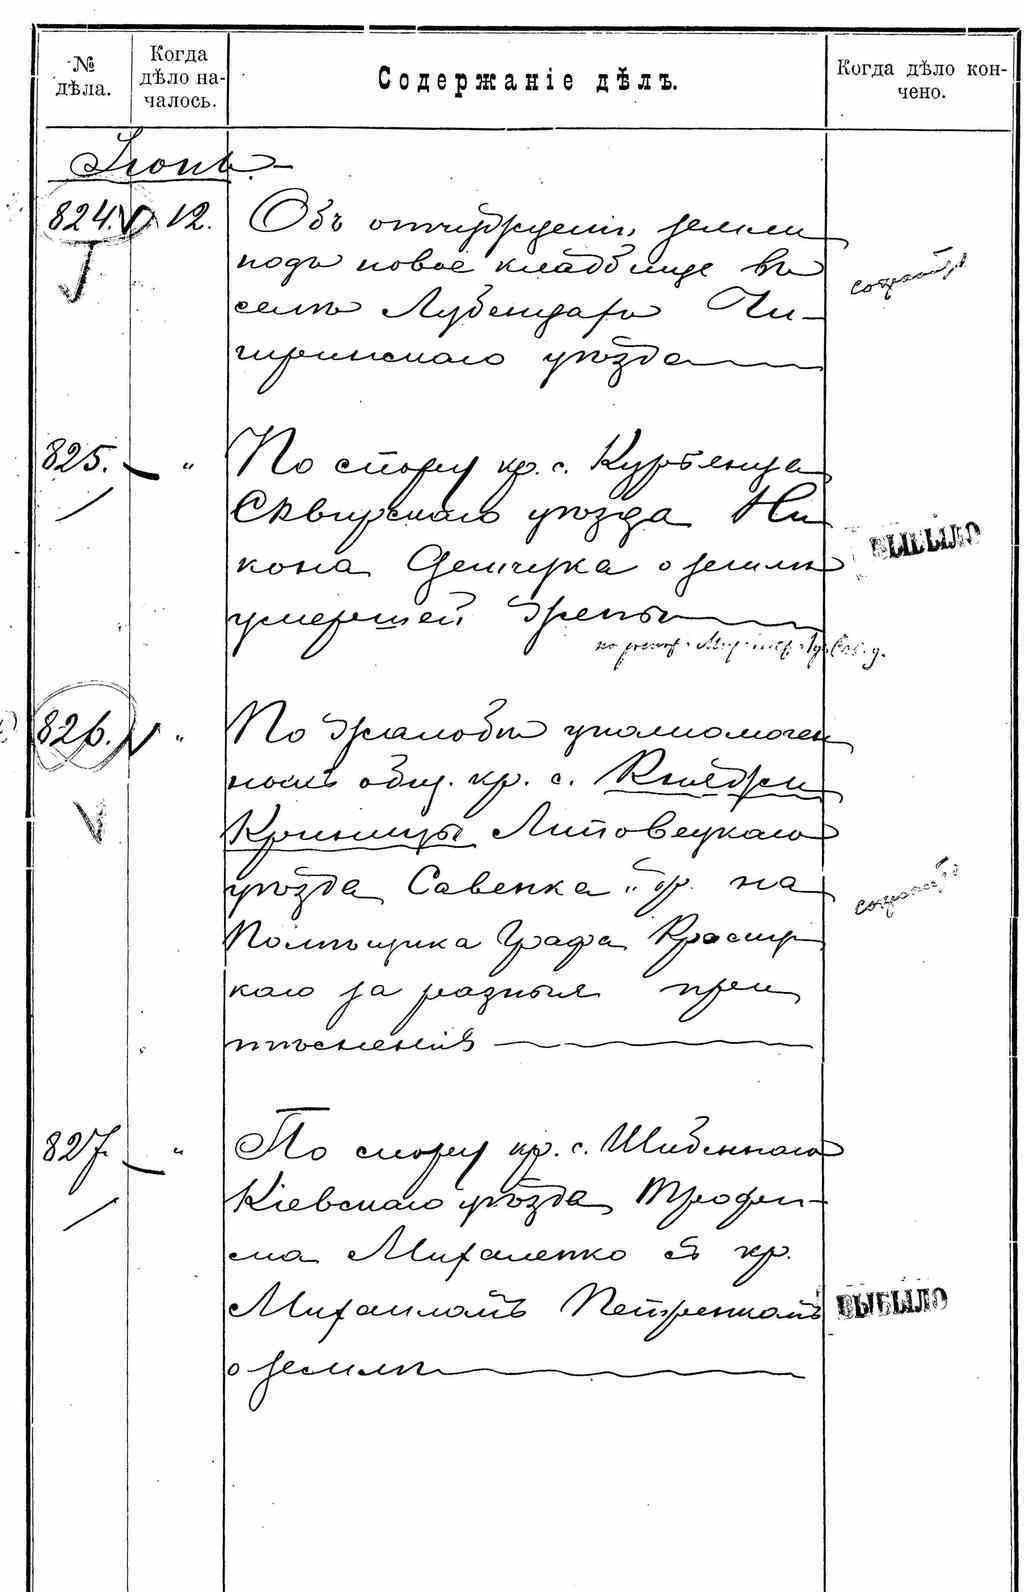 № дѣла.
Когда дѣло на-
чалось.
Содержаніе дѣлъ.
Когда дѣло кон-
чено.
Іюнь.
824. 12. Объ отчужденіи земли
подъ новое кладбище въ
селѣ Лубенцахъ Чи-
гиринскаго уѣзда
825. " По спору кр. с.
Сквирскаго уѣзда Ни
кона Демчука о землѣ
умершей
ВЫБЫЛО
826. " По жалобѣ уполномочен
ныхъ общ. кр. с. Княжи
Криницы Липовецкаго
уѣзда Савенка и др. на
Помѣщика Графа Красиц
каго за разныя при
тѣсненія
827. " По спору кр. с. Шибеннаго
Кіевскаго уѣзда Трофи-
ма Михаленко съ кр.
Михаиломъ Петренкомъ
о землѣ
ВЫБЫЛО